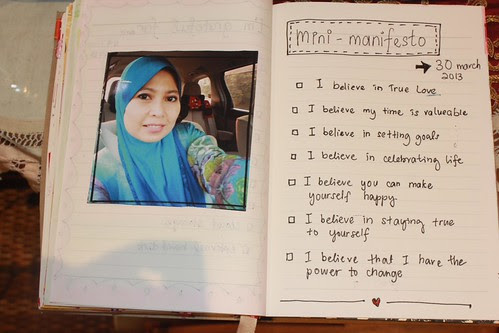 mini - manifesto
→ 30 march
2013
I believe in True Love
I believe my time is valueable
I believe in setting goals
I believe in celebrating life
I believe you can make
yourself happy
I believe in staying true
to yourself
I believe that I have the
power to change